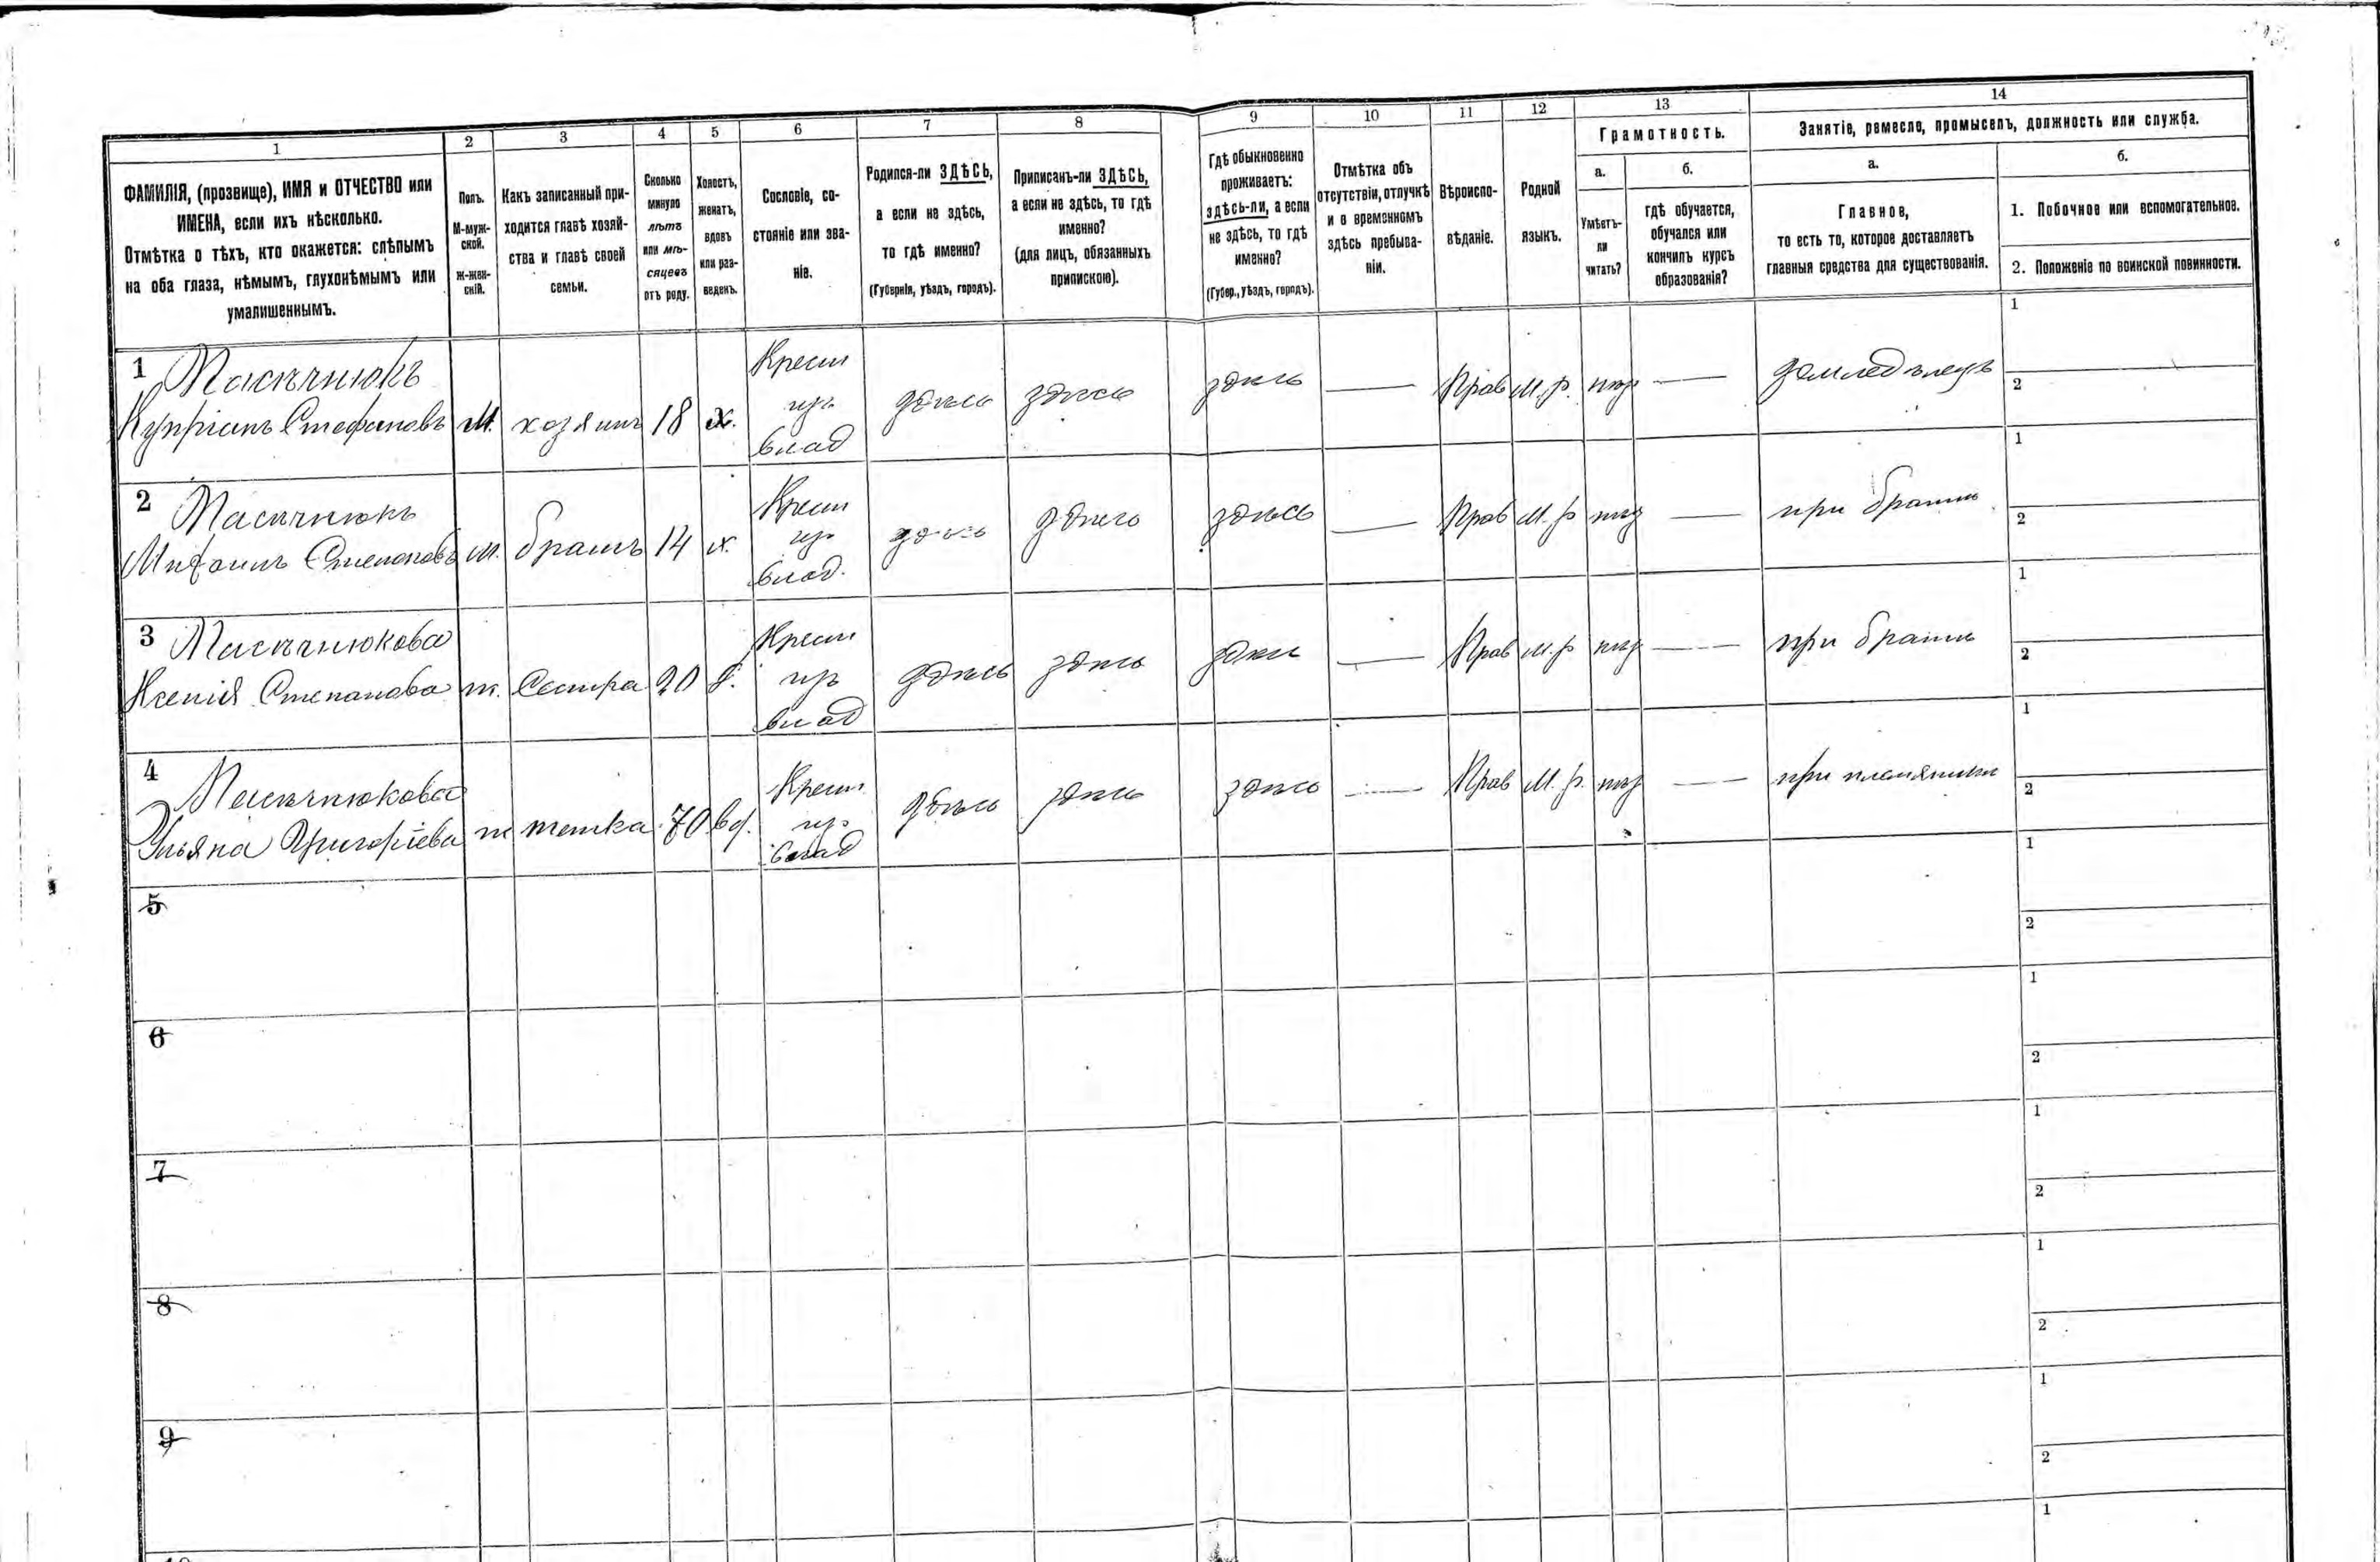 1 2 3 4 5 6 7 8 9 10 11 12 13 14
ФАМИЛІЯ, (прозвище), ИМЯ и ОТЧЕСТВО или
ИМЕНА, если ихъ нѣсколько.
Отмѣтка о тѣхъ, кто окажется: слѣпымъ
на оба глаза, нѣмымъ, глухонѣмымъ или
умалишеннымъ.
Полъ.
М-муж-
ской.
Ж-жен-
скій.
Какъ записанный при-
ходится главѣ хозяй-
ства и главѣ своей
семьи.
Сколько
минуло
лѣтъ
или мѣ-
сяцевъ
отъ роду.
Холостъ,
женатъ,
вдовъ
или раз-
веденъ.
Сословіе, со-
стояніе или зва-
ніе.
Родился-ли ЗДѢСЬ,
а если не здѣсь,
то гдѣ именно?
(Губернія, уѣздъ, городъ).
Приписанъ-ли ЗДѢСЬ,
а если не здѣсь, то гдѣ
именно?
(для лицъ, обязанныхъ
припискою).
Гдѣ обыкновенно
проживаетъ:
здѣсь-ли, а если
не здѣсь, то гдѣ
именно?
(Губер., уѣздъ, городъ).
Отмѣтка объ
отсутствіи, отлучкѣ
и о временномъ
здѣсь пребыва-
ніи.
Вѣроиспо-
вѣданіе.
Родной
языкъ.
Грамотность.
а.
Умѣетъ-
ли
читать?
б.
гдѣ обучается,
обучался или
кончилъ курсъ
образованія?
Занятіе, ремесло, промыселъ, должность или служба.
а.
Главное,
то есть то, которое доставляетъ
главныя средства для существованія.
б.
1. Побочное или вспомогательное.
2. Положеніе по воинской повинности.
1
Купріянъ Стефановъ
М. хозяинъ 18 х.
Крест
изъ
влад
здѣсь здѣсь здѣсь — Прав М.р. нѣт — земледѣлецъ
1
2
2
Степановъ
м. братъ 14 х.
Крест
изъ
влад.
здѣсь здѣсь здѣсь — Прав М.р нѣт — при братѣ
1
2
3
Ксенія Степанова
ж. Сестра 20 д.
Крест
изъ
влад
здѣсь здѣсь здѣсь — Прав М.р нѣт — при братѣ
1
2
4
Ульяна Григоріева
ж тетка 70 вд.
Крест
изъ
влад
здѣсь здѣсь здѣсь — Прав М.р. нѣт — при племяннике
1
2
5
1
2
6
1
2
7
1
2
8
1
2
9
1
2
1